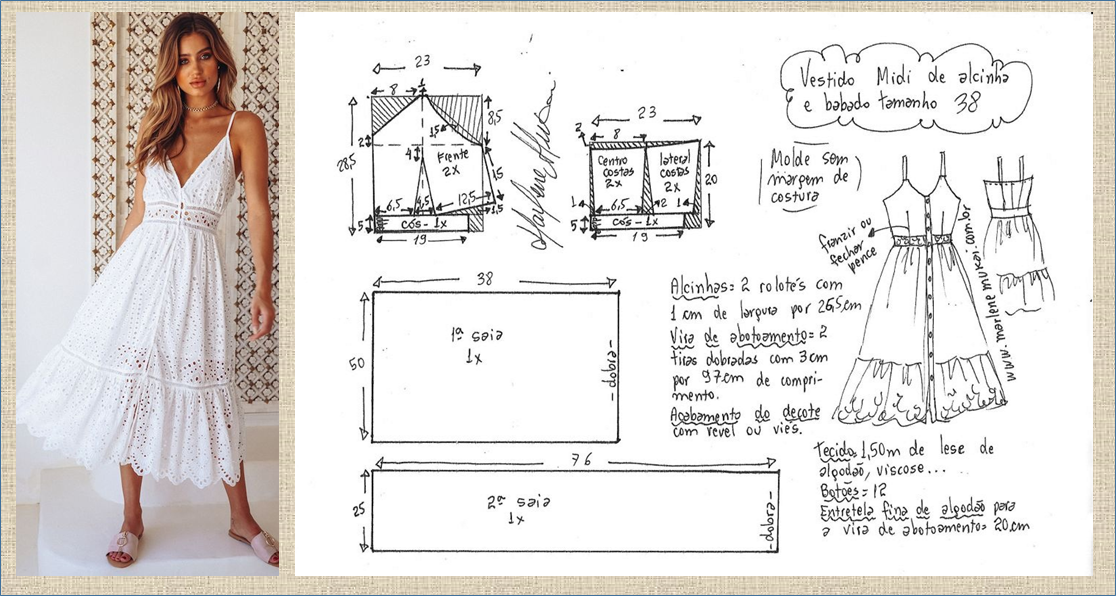 Vestido Midi de alcinha
e babado tamanho 38
Molde sem
margem de
costura
23
8
1
8,5
15
2
28,5
4
Frente
2x
15
6,5
4,5
12,5
1,5
5
cós - 1x
19
Marlene Mukai
23
2
8
centro
costas
2x
lateral
costas
2x
20
1
6,5
2
1
5
cós - 1x
19
franzir ou
fechar
pence
www.marlenemukai.com.br
38
50
1ª saia
1x
- dobra -
76
25
2ª saia
1x
- dobra -
Alcinhas = 2 rolotês com
1 cm de largura por 26,5cm
Vira de abotoamento = 2
tiras dobradas com 3cm
por 97cm de compri-
mento.
Acabamento do decote
com revel ou viés.
Tecido, 1,50m de lese de
algodão, viscose...
Botões = 12
Entretela fina de algodão para
a vira de abotoamento = 20cm